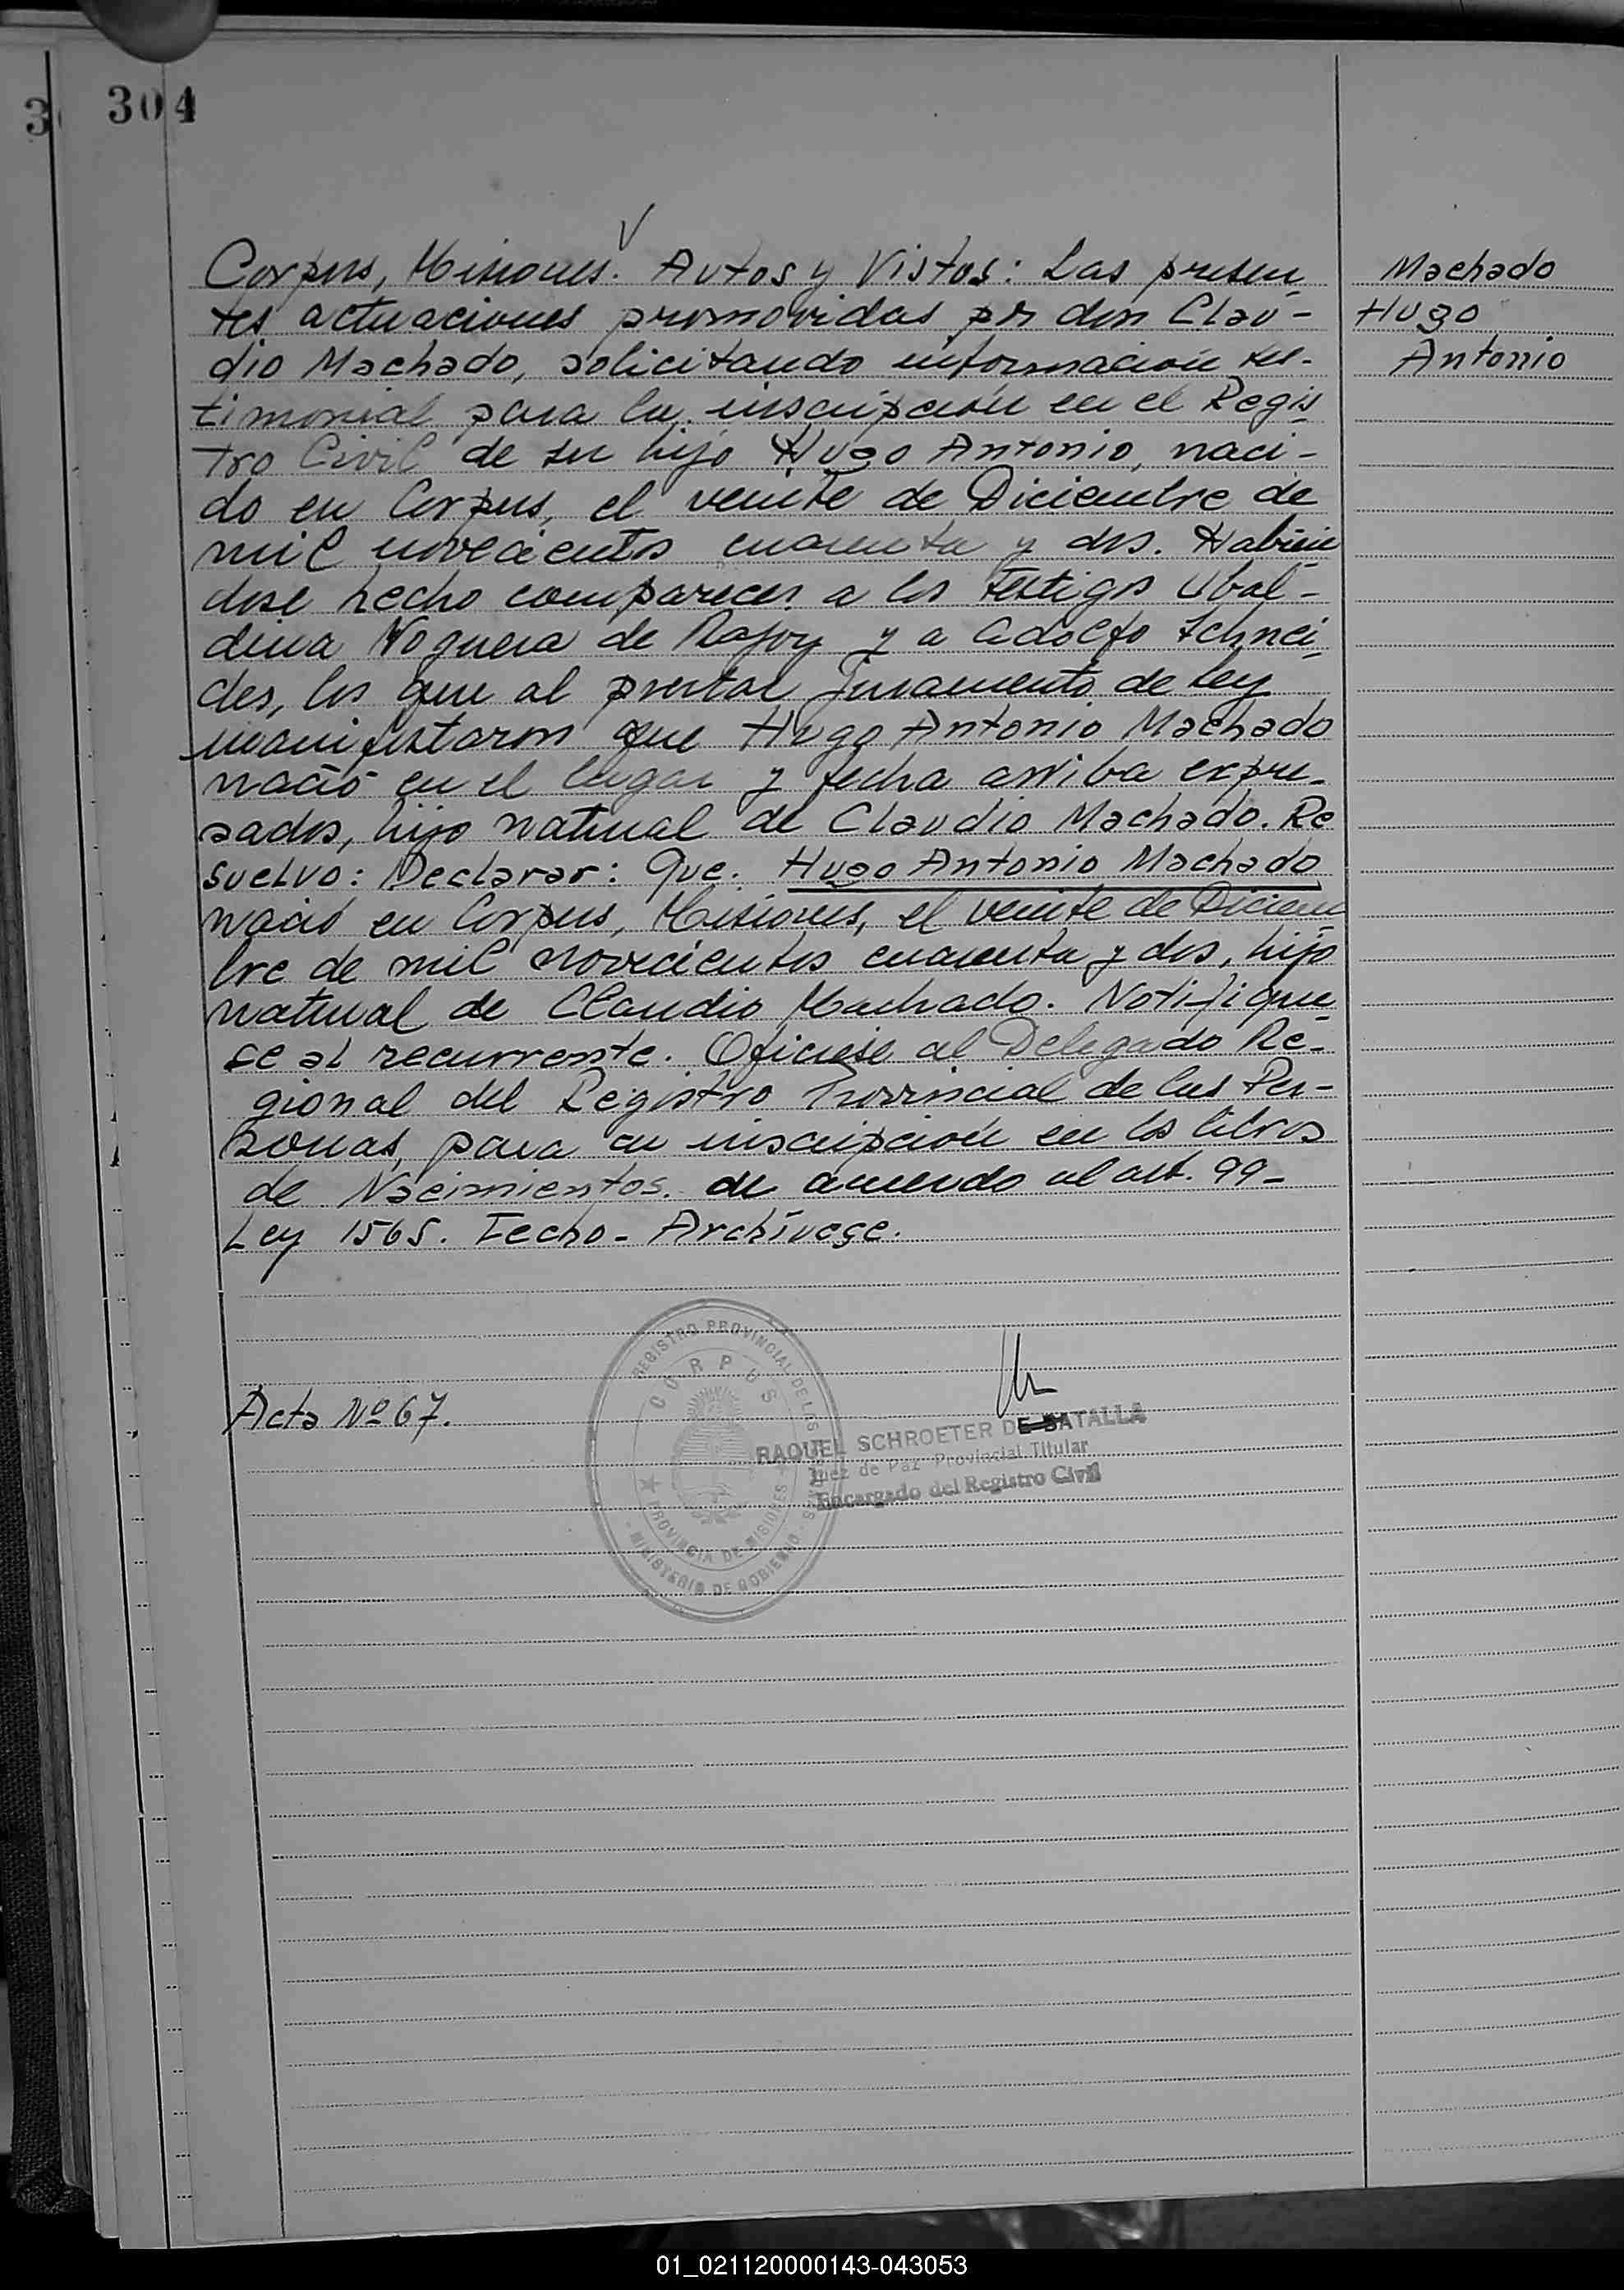 304
Corpus, Misiones. Autos y Vistos: Las presen-
tes actuaciones promovidas por don Clau-
dio Machado, solicitando información tes-
timonial para la inscripción en el Regis-
tro Civil de su hijo Hugo Antonio, naci-
do en Corpus, el veinte de Diciembre de
mil novecientos cuarenta y dos. Habien
dose hecho comparecer a los testigos Ubal-
dina Noguera de y a Adolfo Schnei-
der, los que al prestar juramento de ley
manifestaron que Hugo Antonio Machado
nació en el lugar y fecha arriba expre-
sados, hijo natural de Claudio Machado. Re
suelvo: Declarar: Que. Hugo Antonio Machado
nació en Corpus, Misiones, el veinte de Diciem
bre de mil novecientos cuarenta y dos, hijo
natural de Claudio Machado. Notifique
se al recurrente. Oficiese al Delegado Re-
gional del Registro Provincial de las Per-
sonas, para su inscripción en los libros
de Nacimientos. de acuerdo al art. 99-
Ley 1565. Fecho- Archívese.
Acta Nº 67.
Machado
Hugo
Antonio
REGISTRO PROVINCIAL DE LAS
CORPUS
PROVINCIA DE MISIONES
MINISTERIO DE GOBIERNO
RAQUEL SCHROETER DE BATALLA
Juez de Paz Provincial Titular
Encargado del Registro Civil
01_021120000143-043053